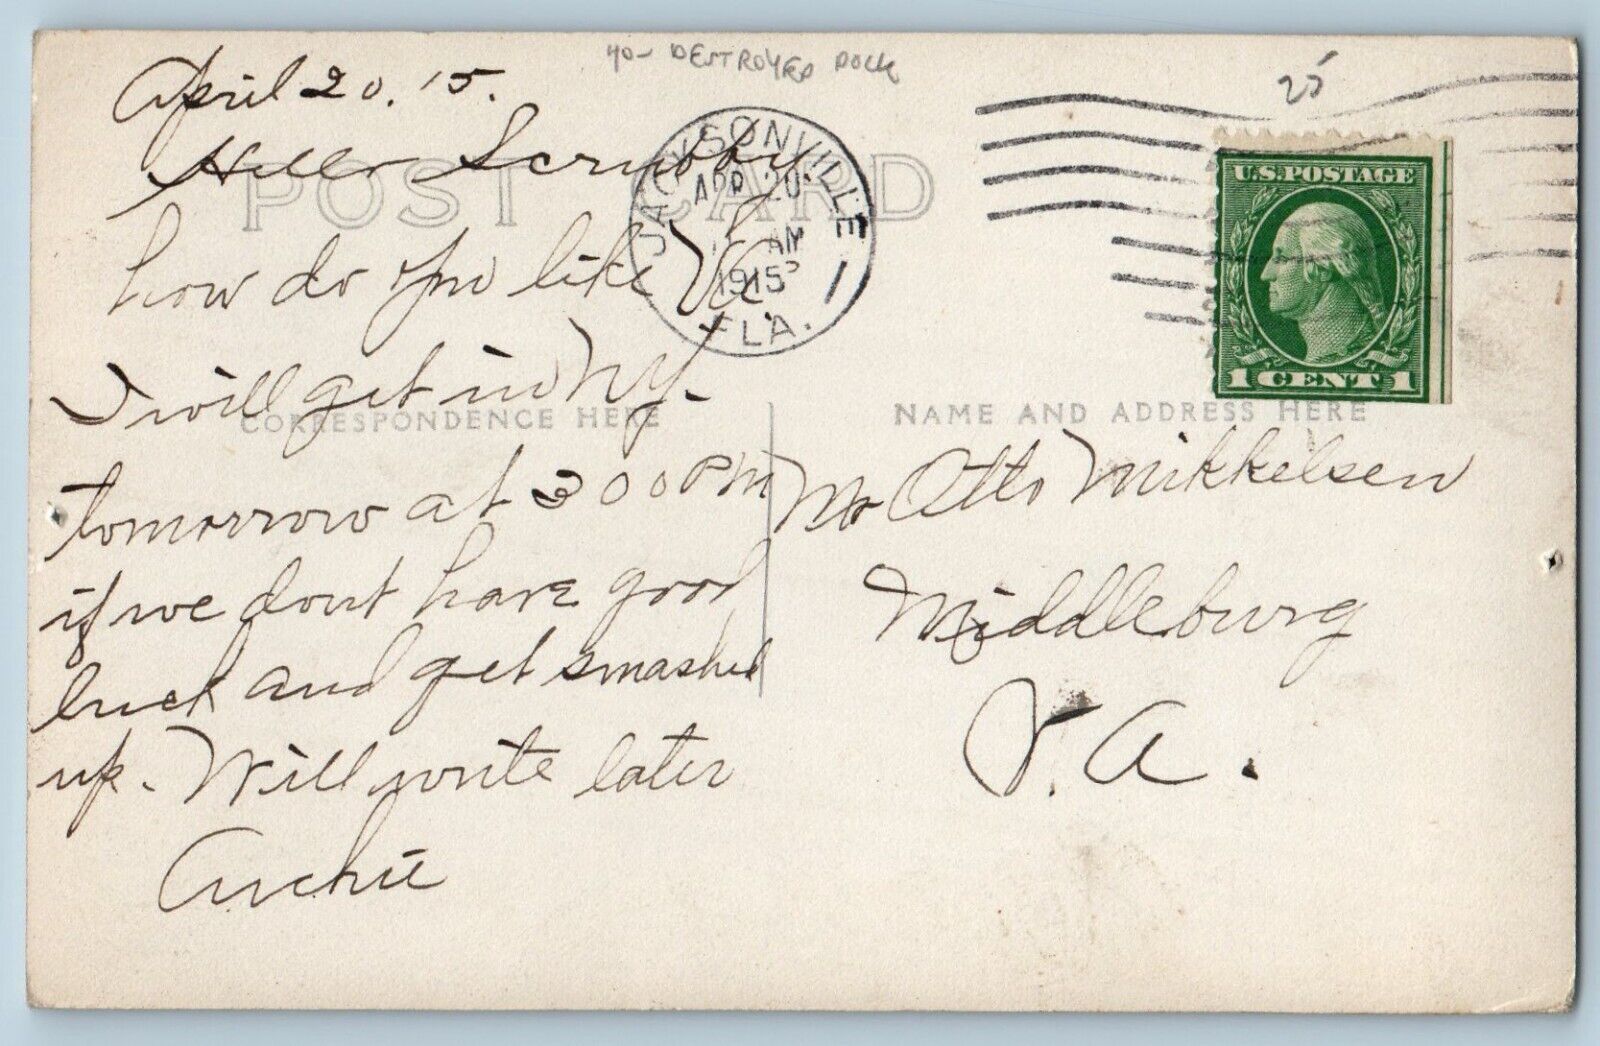 DESTROYED DOCK
25
April 20. 15.
POST CARD
Hello Scrubby.
how do you like Va
I will get in N.Y.
tomorrow at 300 PM
if we dont have good
luck and get smashed
up. Will write later
Archie
JACKSONVILLE
APR 20
AM
1915
FLA.
1
U.S. POSTAGE
1 CENT 1
CORRESPONDENCE HERE
NAME AND ADDRESS HERE
Mr Otto Mikkelsen
Middleburg
V.A.